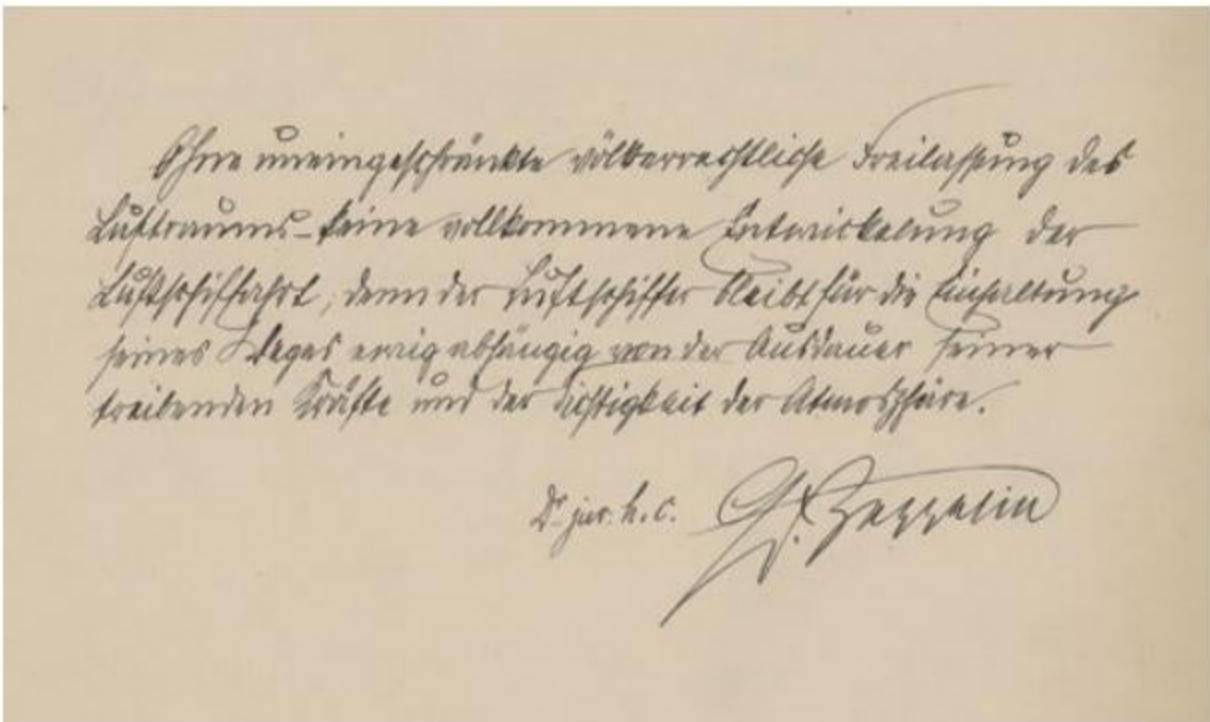 Ohne uneingeschränkte völkerrechtliche Freilassung des
Luftraums - keine vollkommene Entwickelung der
Luftschiffahrt, denn der Luftschiffer bleibt für die Einhaltung
seines Weges ewig abhängig von der Ausdauer seiner
treibenden Kräfte und der Sichtigkeit der Atmosphäre.
Dr. jur. h. c. Gf. Zeppelin